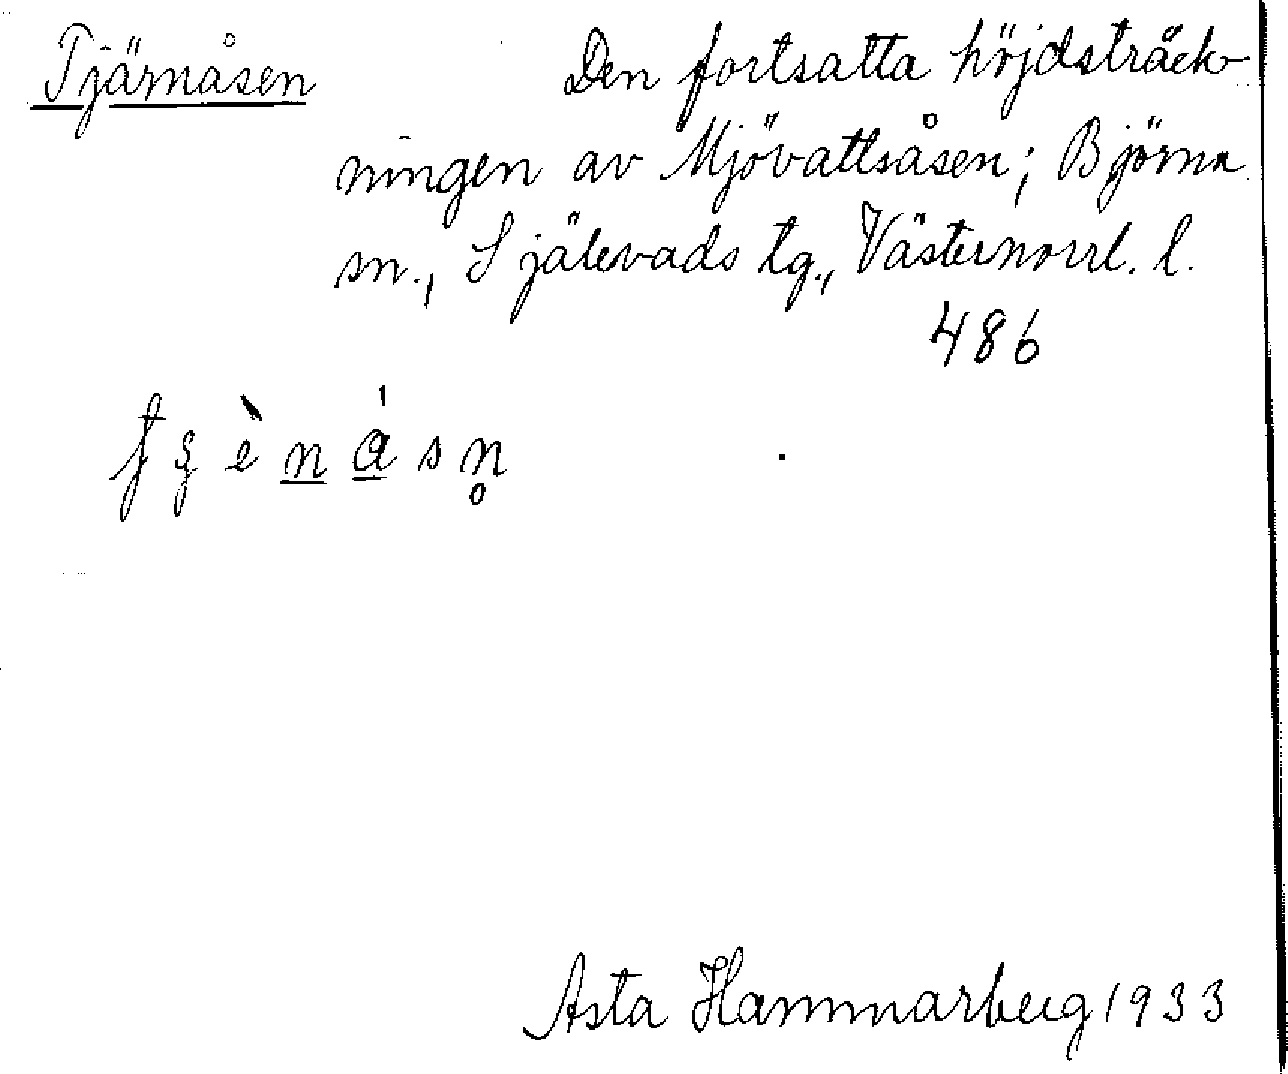 Tjärnåsen Den fortsatta höjdsträck-
ningen av Mjövattsåsen; Björna
sn., Själevads tg., Västernorrl. l.
486
Asta Hammarberg 1933